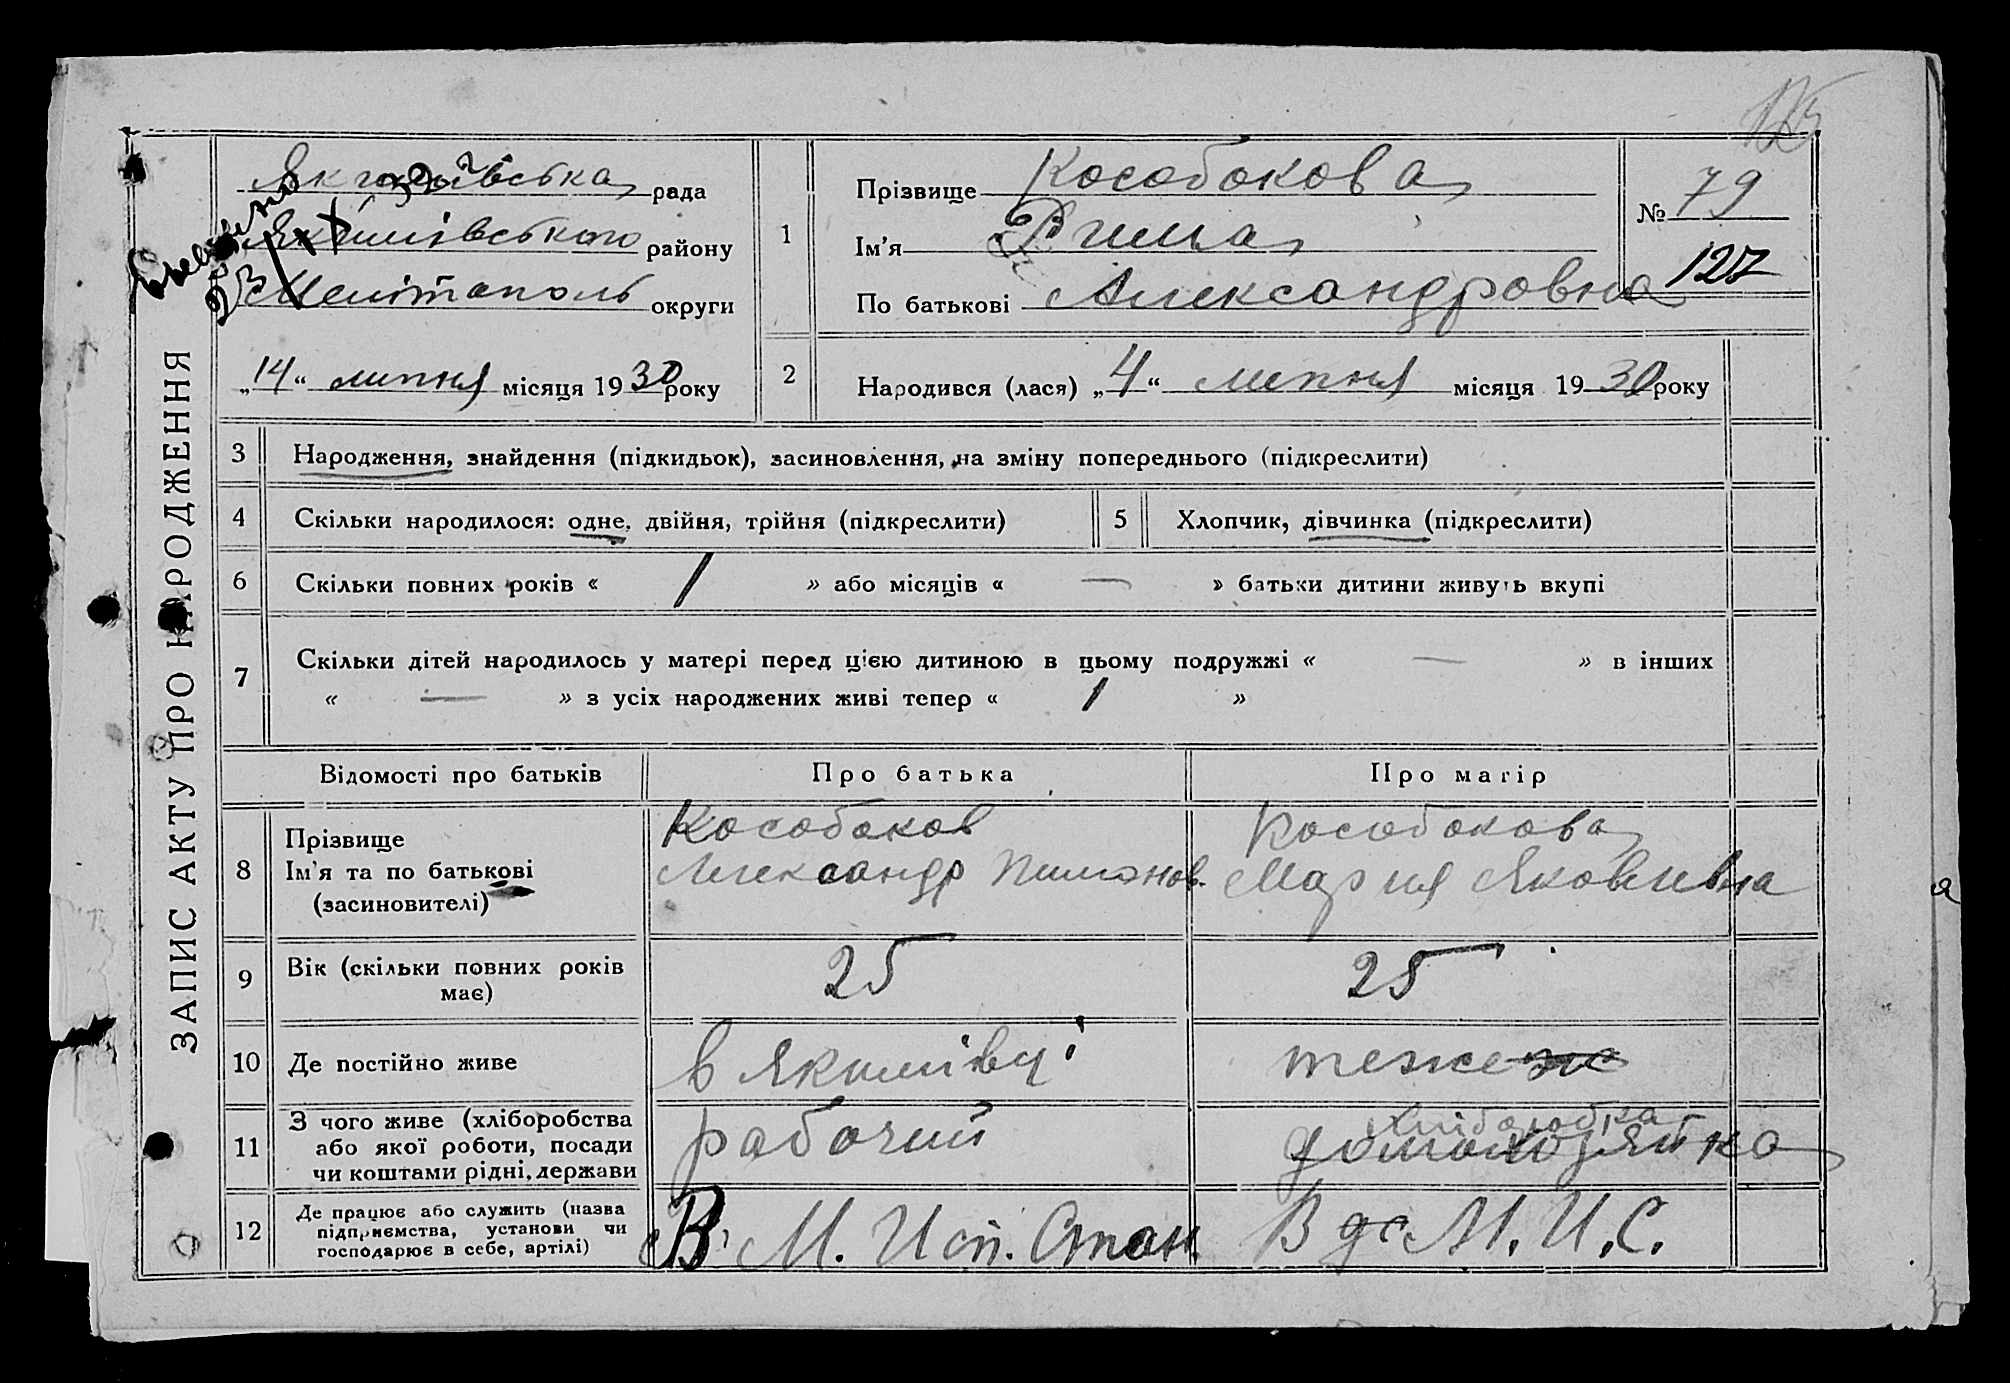 ЗАПИС АКТУ ПРО НАРОДЖЕННЯ
Якимівська рада
Якимівського району
Мелітополь округи
„14“ липня місяця 1930 року
1
Прізвище Кособокова
Ім'я Рима
По батькові Александровна
№ 79
127
2
Народився (лася) „4“ липня місяця 1930 року
3 Народження, знайдення (підкидьок), засиновлення, на зміну попереднього (підкреслити)
4 Скільки народилося: одне, двійня, трійня (підкреслити)
5 Хлопчик, дівчинка (підкреслити)
6 Скільки повних років « 1 » або місяців « — » батьки дитини живуть вкупі
7 Скільки дітей народилось у матері перед цією дитиною в цьому подружжі « — » в інших
« — » з усіх народжених живі тепер « 1 »
Відомості про батьків Про батька Про матір
8
Прізвище
Ім'я та по батькові
(засиновителі)
Кособоков
Александр Пимонов.
Кособокова
Мария Яковлевна
9
Вік (скільки повних років
має)
25
25
10 Де постійно живе
в Якимівці
теже
11
З чого живе (хліборобства
або якої роботи, посади
чи коштами рідні, держави
рабочий
хліборобка
домохозяйка
12
Де працює або служить (назва
підприємства, установи чи
господарює в себе, артілі)
В М. Исп. Стан.
В дс. М. И. С.